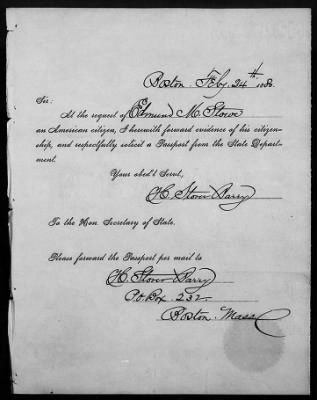 Boston, Feby. 24th. 1888.
Sir:
At the request of Edmund M. Stowe
an American citizen, I herewith forward evidence of his citizen-
ship, and respectfully solicit a Passport from the State Depart-
ment.
Your obed't Servt,
H. Stover Barry
To the Hon Secretary of State.
Please forward the Passport per mail to
H. Stover Barry
P.O. Box 232
Boston Mass